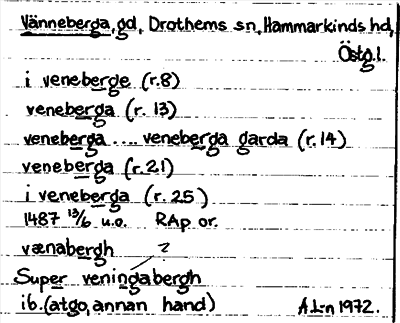 Vänneberga, gd, Drothems sn, Hammarkinds hd,
Östg.l.
i veneberge (r.8)
veneberga (r. 13)
veneberga .... veneberga garda (r. 14)
veneberga (r.21)
i veneberga (r. 25)
1487 13/6 u.o. RAp or.
vænabergh ?
Super veningabergh
ib. (atgo, annan hand) A.L-n 1972.